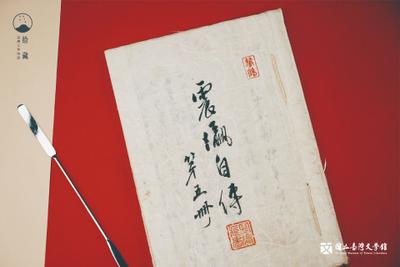 拾藏
震瀛自傳
第五冊
國立台灣文學館
National Museum of Taiwan Literature